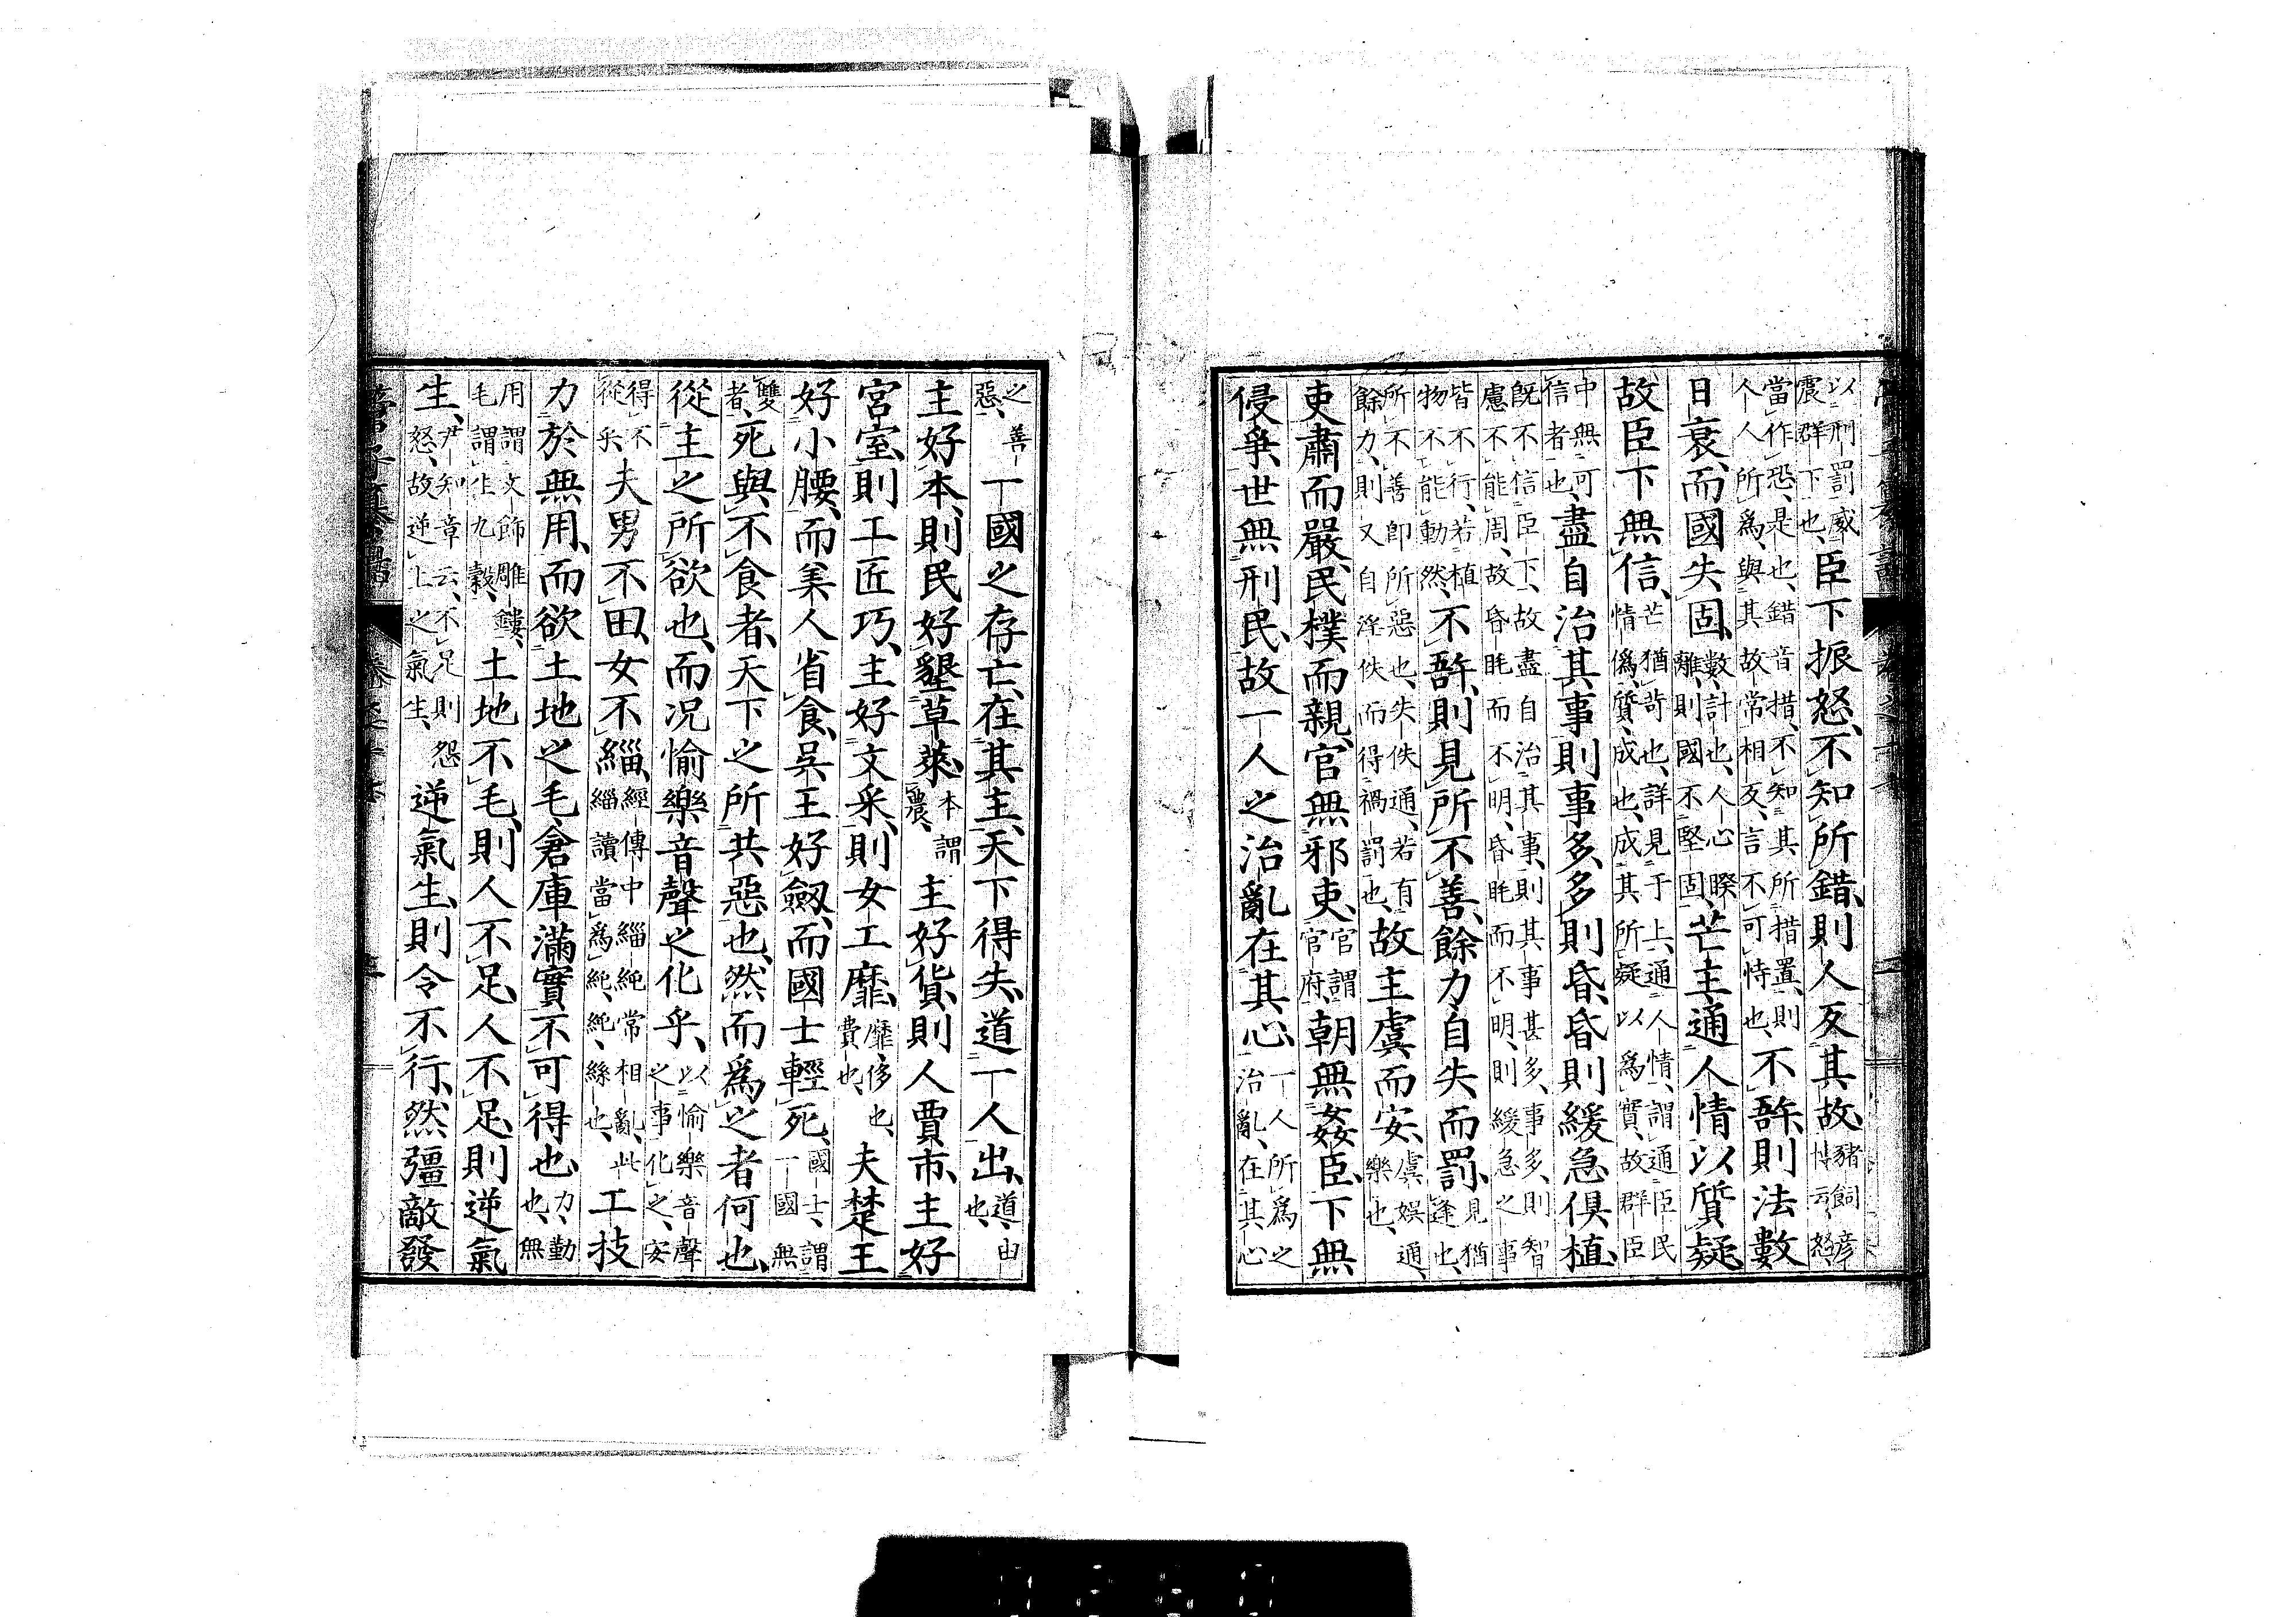 以刑罰威
震群下也、臣下振怒、不知所錯、則人反其故、豬飼彥
博云、怒、
當作恐、是也、錯音措、不知其所措置、則
人人所爲、與其故常相反、言不可恃也、不語、則法數
日衰、而國失固、數計也、人心睽
離、則國不堅固、芒主通人情以質疑、
故臣下無信、芒猶苛也、詳見于上、通人情、謂通臣民
情僞、質、成也、成其所疑以爲實、故群臣
中無可
信者也、盡自治其事則事多、多則昏、昏則緩急俱植、
既不信臣下、故盡自治其事、則其事甚多、事多、則智
慮不能周、故昏眊而不明、昏眊而不明、則緩急之事
皆不行、若植
物不能動然、不語、則見所不善、餘力自失而罰、見猶
逢也、
所不善卽所惡也、失佚通、若有
餘力、則又自淫佚而得禍罰也、故主虞而安、虞娛通、
樂也、
吏肅而嚴、民樸而親、官無邪吏、官謂
官府、朝無姦臣、下無
侵爭、世無刑民、故一人之治亂在其心、一人所爲之
治亂、在其心
之善
惡、一國之存亡、在其主、天下得失、道一人出、道、由
也、
主好本、則民好墾草萊、本謂
農、主好貨、則人賈市、主好
宮室、則工匠巧、主好文采、則女工靡、靡、侈也、
費也、夫楚王
好小腰、而美人省食、吳王好劔、而國士輕死、國士、謂
一國無
雙
者、死與不食者、天下之所共惡也、然而爲之者何也、
從主之所欲也、而況愉樂音聲之化乎、以愉樂音聲
之事化之、安
得不
從乎、夫男不田、女不緇、經傳中緇純常相亂、此
緇讀當爲純、純、絲也、工技
力於無用、而欲土地之毛、倉庫滿實、不可得也、力、勤
也、無
用謂文飾雕鏤、
毛謂生九穀、土地不毛、則人不足、人不足、則逆氣
生、尹知章云、不足則怨
怒、故逆上之氣生、逆氣生、則令不行、然彊敵發